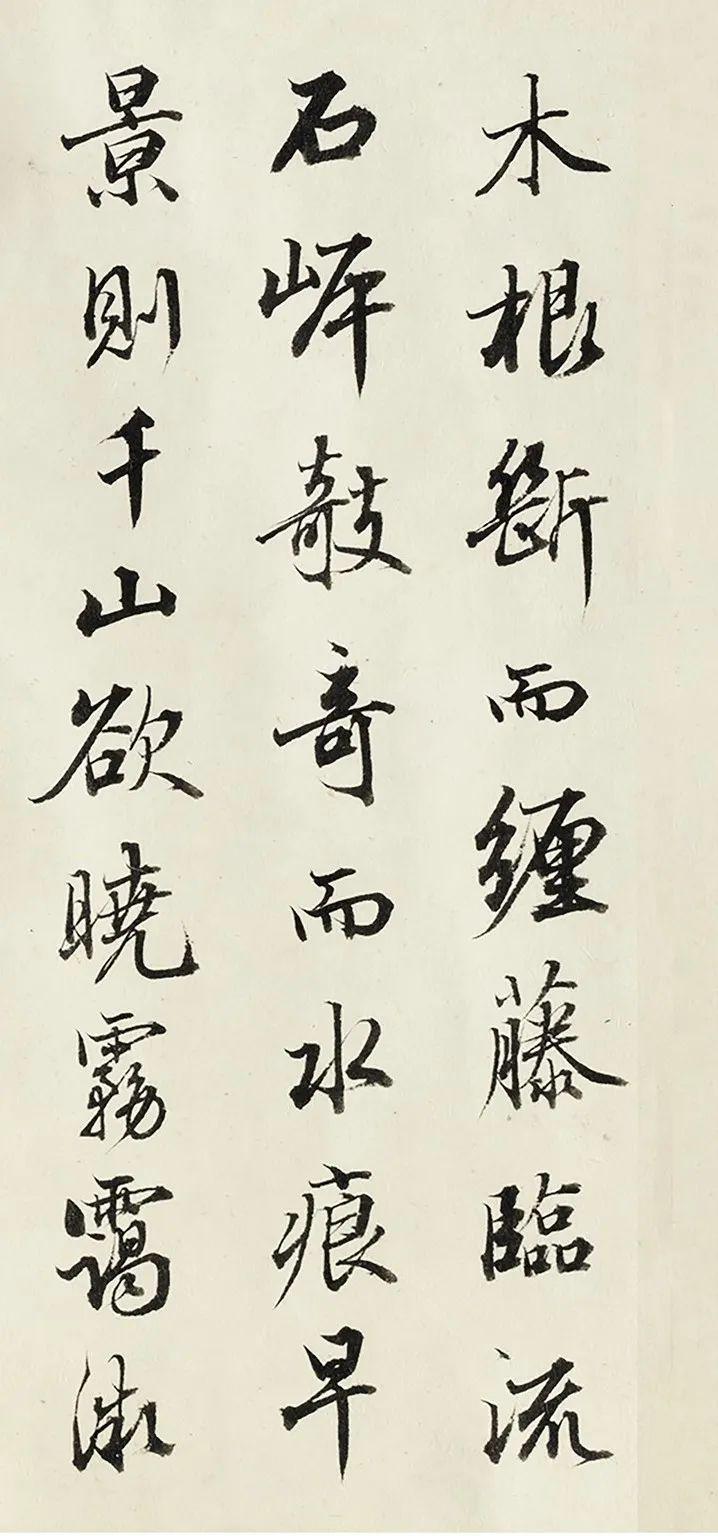 木根斷而纏藤臨流
石岸敧奇而水痕早
景則千山欲曉霧靄微